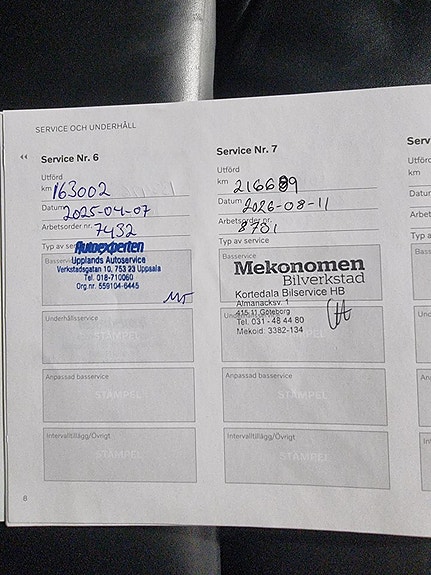 SERVICE OCH UNDERHÅLL
Service Nr. 6
Utförd
km 163002
Datum 2025-04-07
Arbetsorder nr. 7432
Typ av service
Autoexperten
Upplands Autoservice
Verkstadsgatan 10, 753 23 Uppsala
Tel. 018-710060
Org.nr. 559104-6445
Underhållsservice
STÄMPEL
Anpassad basservice
STÄMPEL
Intervalltillägg/Övrigt
STÄMPEL
8
Service Nr. 7
Utförd
km
Datum 2026-08-11
Arbetsorder nr. 8701
Typ av service
Basservice
Mekonomen
Bilverkstad
Kortedala Bilservice HB
Almanacksv. 1
415 11 Göteborg
Tel. 031 - 48 44 80
Mekoid: 3382-134
STÄMPEL
Anpassad basservice
STÄMPEL
Intervalltillägg/Övrigt
STÄMPEL